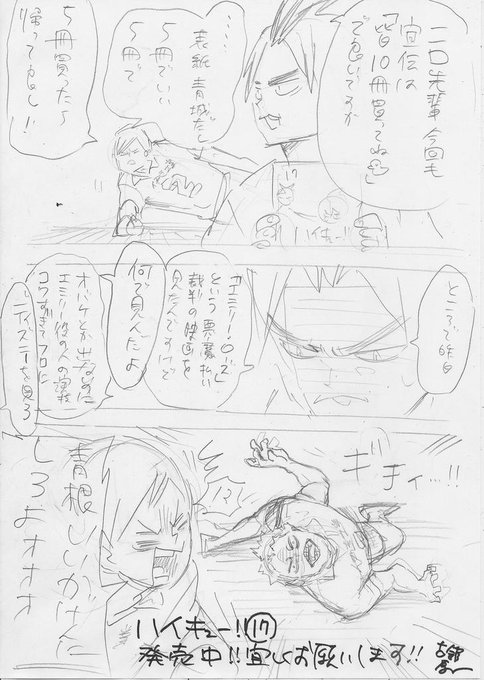 二口先輩 今回も
宣伝は
「皆10冊買ってね」
で良いですか
……
表紙 青城だし
5冊でいい
5冊で
5冊買ったら
帰って良し!!
ハイキュー!!
ところで昨日
という悪魔払い
裁判の映画を
見たんですけど
何で見んだよ
オバケとか出ないのに
エミリー役の人の演技
コワすぎてフロに
ディズニーを見ろ
青根いいかげんに
しろよオオオ
ハイキュー!!⑰
発売中!!宜しくお願いします!!